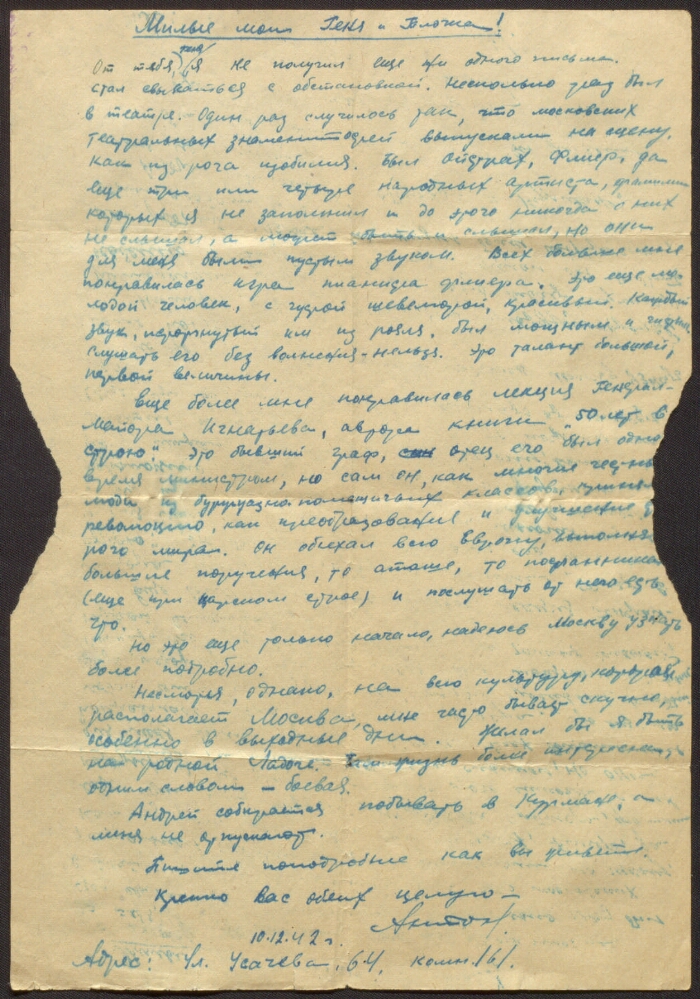 Милые мои Геня и Блока!
От тебя, Геня, я не получил еще ни одного письма.
стал свыкаться с обстановкой. Несколько раз был
в театре. Один раз случилось так, что московских
театральных знаменитостей выпускали на сцену,
как из рога изобилия. Был Ойстрах, Флиер, да
еще три или четыре народных артиста, фамилии
которых я не запомнил и до этого никогда о них
не слышал, а может быть и слышал, но они
для меня были пустым звуком. Всех больше мне
понравилась игра пианиста Флиера. Это еще мо-
лодой человек, с чудной шевелюрой, красивый. Каждый
звук, исторгнутый им из рояля, был мощным и
слушать его без волнения - нельзя. Это талант большой,
первой величины.
Еще более мне понравилась лекция Генерал-
майора Игнатьева, автора книги "50 лет в
строю". Это бывший граф, отец его был одно
время министром, но сам он, как многие
люди буржуазно-помещичьих классов
революцию, как преобразования и
рого мира. Он объехал всю Европу,
большие поручения, то атташе, то посланника
(еще при царском строе) и послушать от него есть
что.
Но это еще только начало, надеюсь Москву узнать
более подробно.
Несмотря, однако, на всю культуру, которой
располагает Москва, мне часто бывает скучно,
особенно в выходные дни. Желал бы я быть
на родной Ладоге. Там жизнь более интересная,
одним словом - боевая.
Андрей собирается побывать в а
меня не отпускают.
Пишите поподробнее как вы живете.
Крепко Вас обеих целую -
Антон
10.12.42 г.
Адрес: Ул. Усачева, 64, комн. 161.